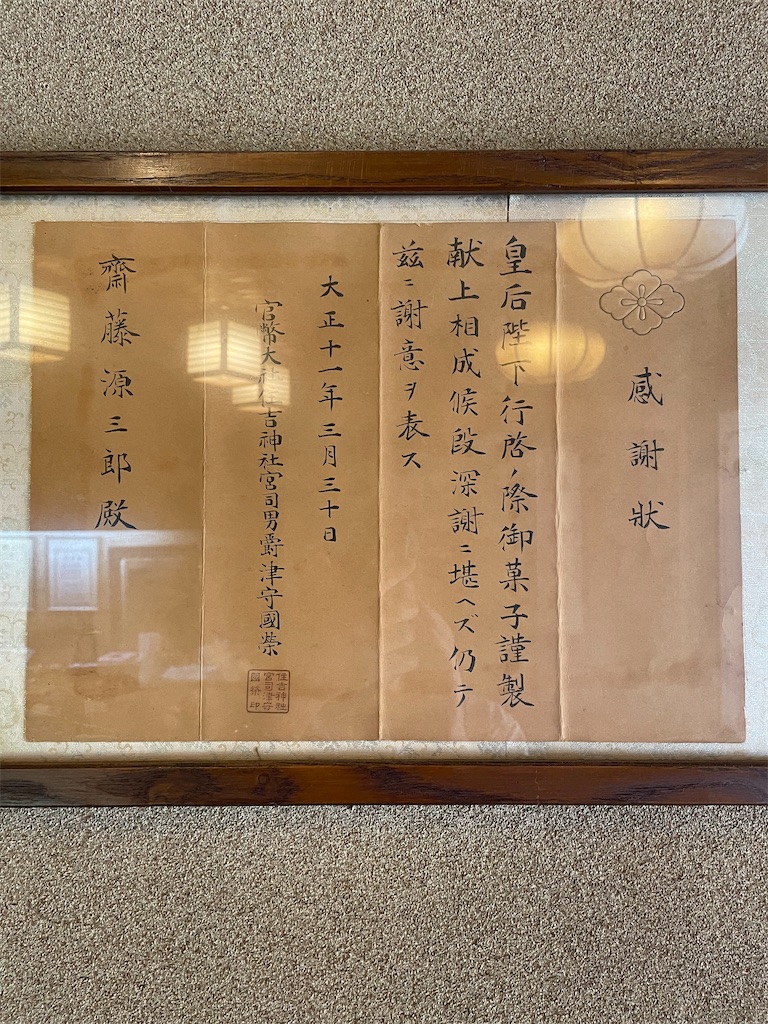 感謝狀
皇后陛下行啓ノ際御菓子謹製
献上相成候段深謝ニ堪ヘズ仍テ
茲ニ謝意ヲ表ス
大正十一年三月三十日
官幣大社住吉神社宮司男爵津守國榮
住吉神社
宮司津守
國榮印
齋藤源三郎殿